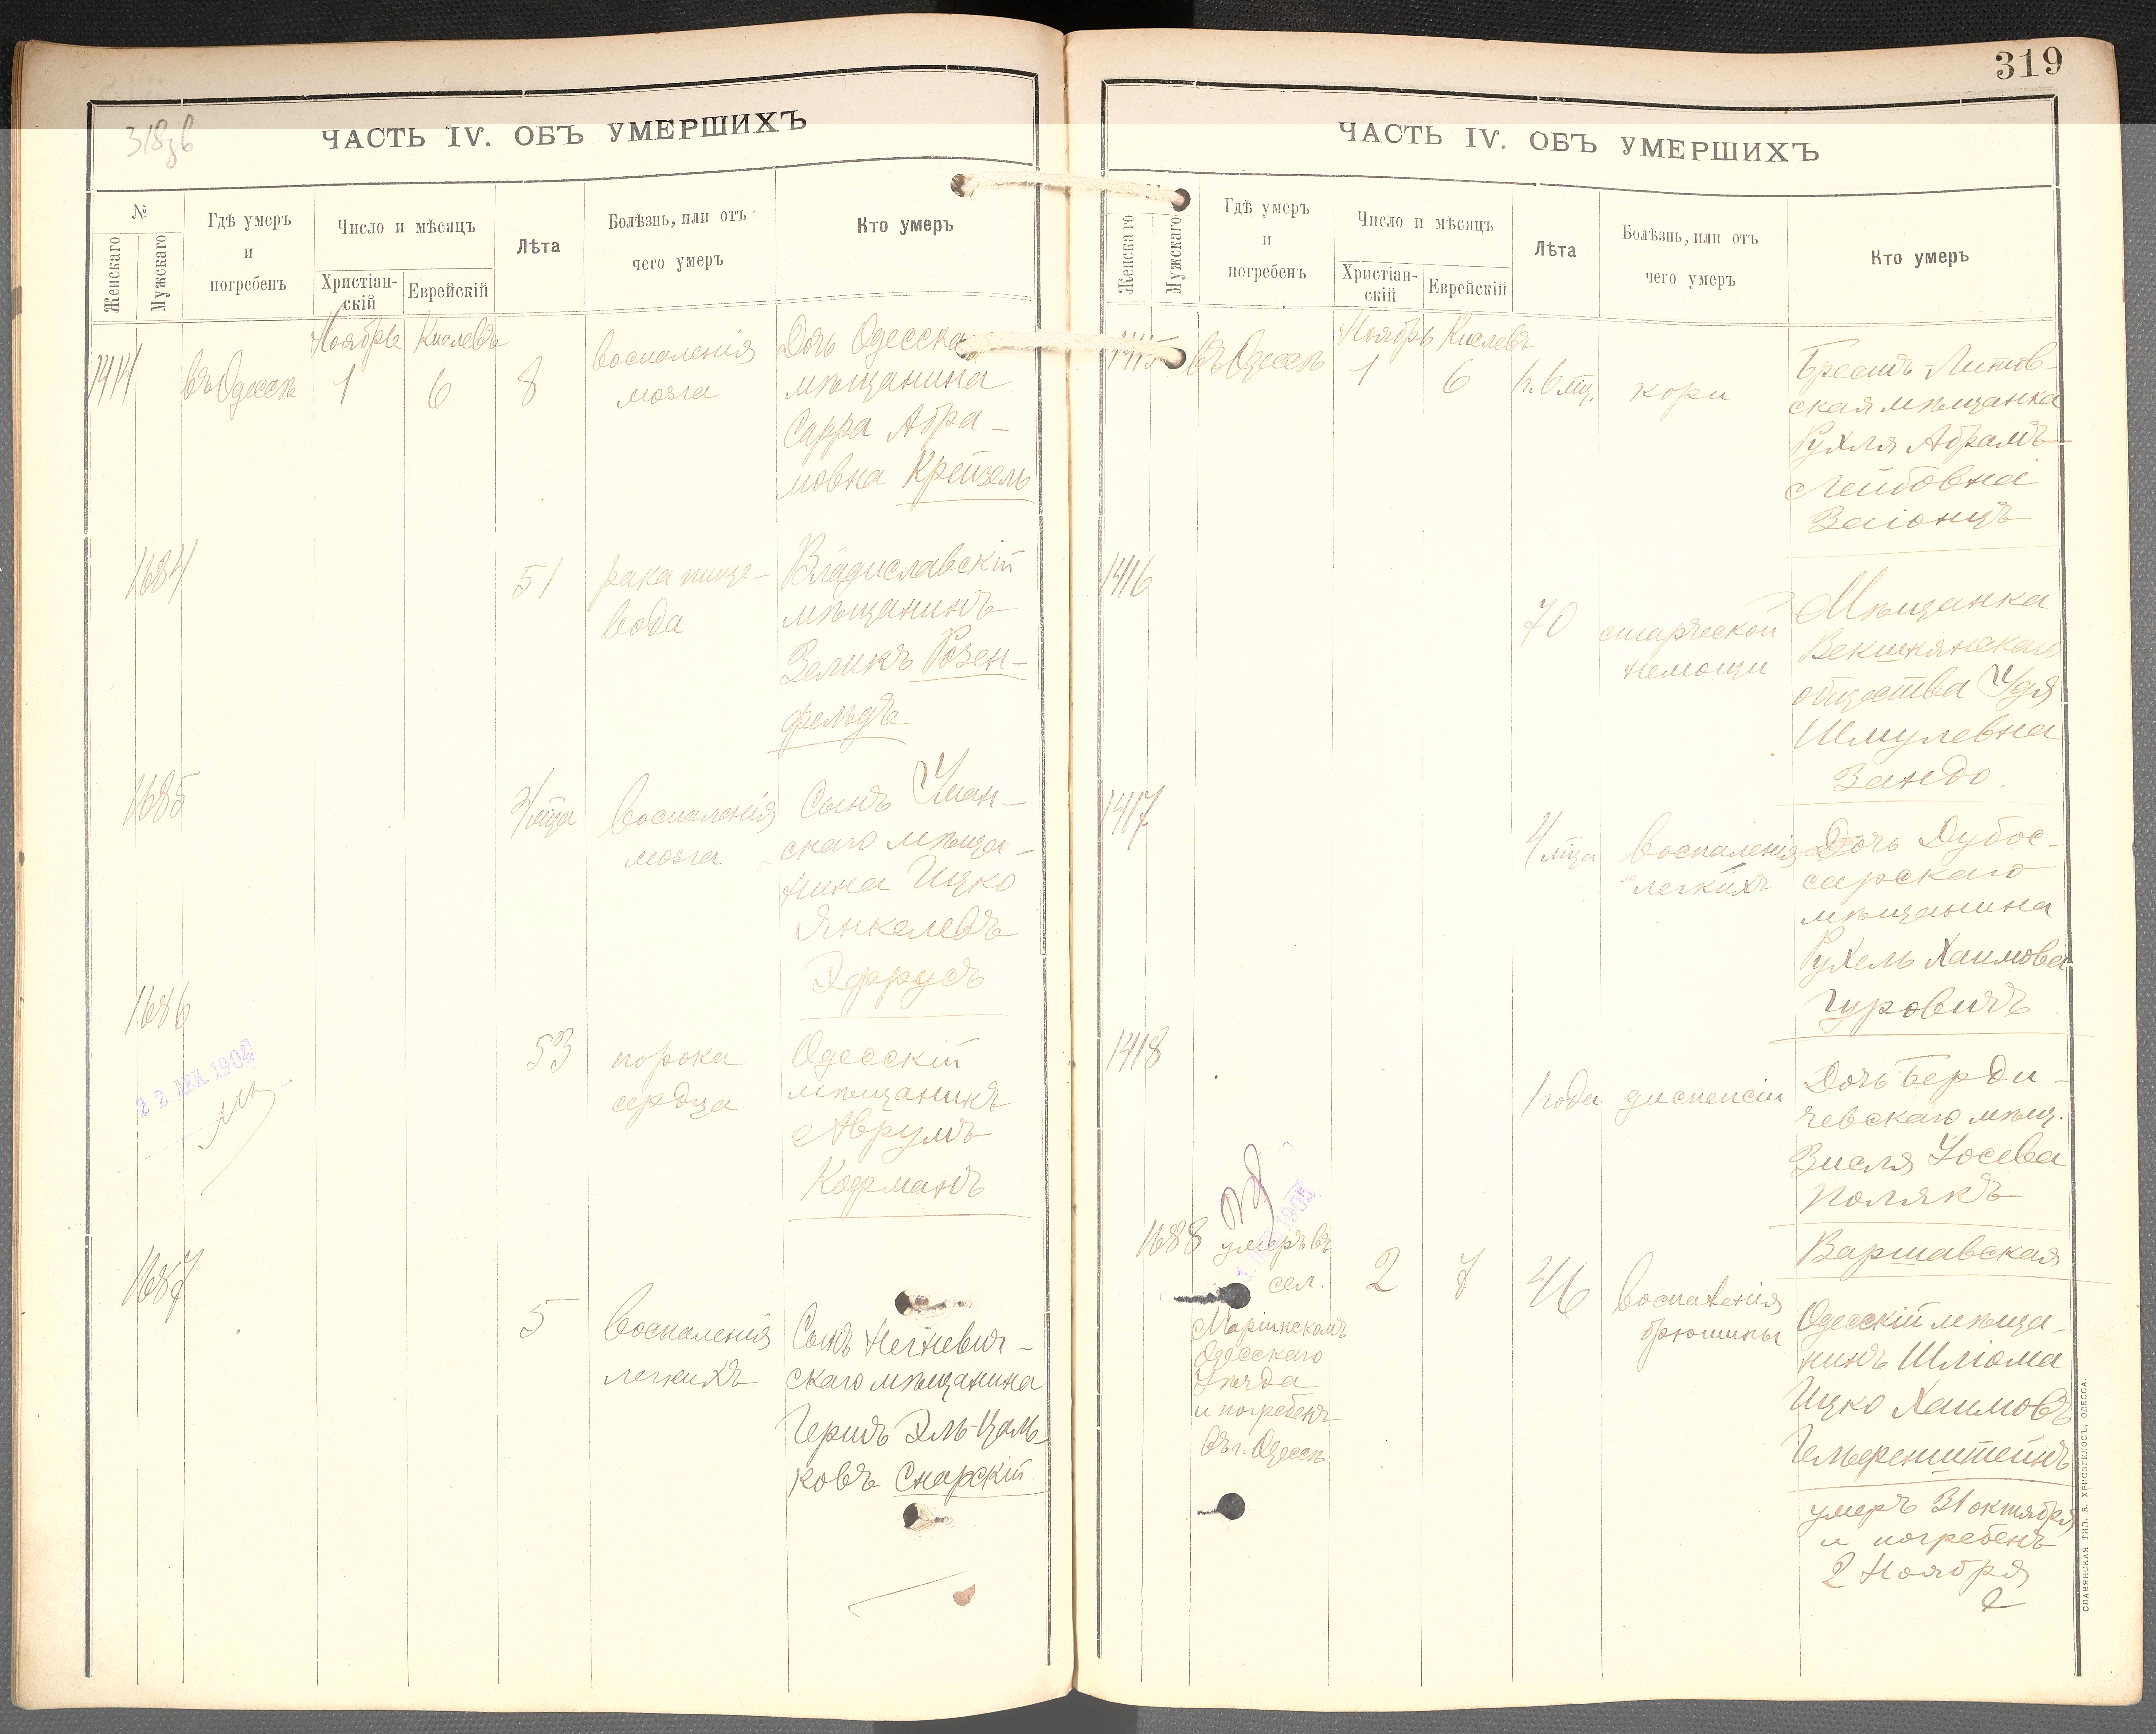 318зв
ЧАСТЬ IV. ОБЪ УМЕРШИХЪ
№
Женскаго
Мужскаго
Гдѣ умеръ
и
погребенъ
Число и мѣсяцъ
Христіан-
скій
Еврейскій
Лѣта
Болѣзнь, или отъ
чего умеръ
Кто умеръ
Ноябрь Кислевъ
1414 въ Одессѣ 1 6 8
воспаленія
мозга
Дочь Одесска
мѣщанина
Сарра Абра-
мовна Крейзель
1684
51
рака пище-
вода
Владиславскій
мѣщанинъ
Зеликъ Розен-
фельдъ
1685
воспаленія
мозга
Сынъ Уман-
скаго мѣща-
нина Ицко
Янкелевъ
Эфрусъ
1686
22. ДЕК. 1904
53
порока
сердца
Одесскій
мѣщанинъ
Аврумъ
Кофманъ
1687
5
воспаленія
легкихъ
Сынъ Негневич-
скаго мѣщанина
Гершъ Эль-Цаль-
ковъ Снарскій.
319
ЧАСТЬ IV. ОБЪ УМЕРШИХЪ
Женскаго
Мужскаго
Гдѣ умеръ
и
погребенъ
Число и мѣсяцъ
Христіан-
скій
Еврейскій
Лѣта
Болѣзнь, или отъ
чего умеръ
Кто умеръ
Ноябрь Кислевъ
1415 въ Одессѣ 1 6 1г. 6 мц. кори
Брестъ-Литов-
ская мѣщанка
Рухля Абрамъ-
Лейбовна
Заіонцъ
1416
70
старческой
немощи
Мѣщанка
Векшнянскаго
общества Удя
Шмулевна
Зандо.
1417
4 мца
воспаленія
легкихъ
Дочь Дубос-
сарскаго
мѣщанина
Рухель Хаимова
Гуровичъ
1418
1 года диспепсіи
Дочь Берди-
чевскаго мѣщ.
Зисля Іосева
Полякъ
Варшавская
1688
умеръ въ
сел.
Маріинскомъ
Одесскаго
Уѣзда
и погребенъ
въ г. Одессѣ
1905
2 7 46
воспаленія
брюшины
Одесскій мѣща-
нинъ Шліома
Ицко Хаимовъ
Гельференштейнъ
умеръ 31 октября
и погребенъ
2 Ноября
СЛАВЯНСКАЯ ТИП. Е. ХРИСОГЕЛОСЪ, ОДЕССА.